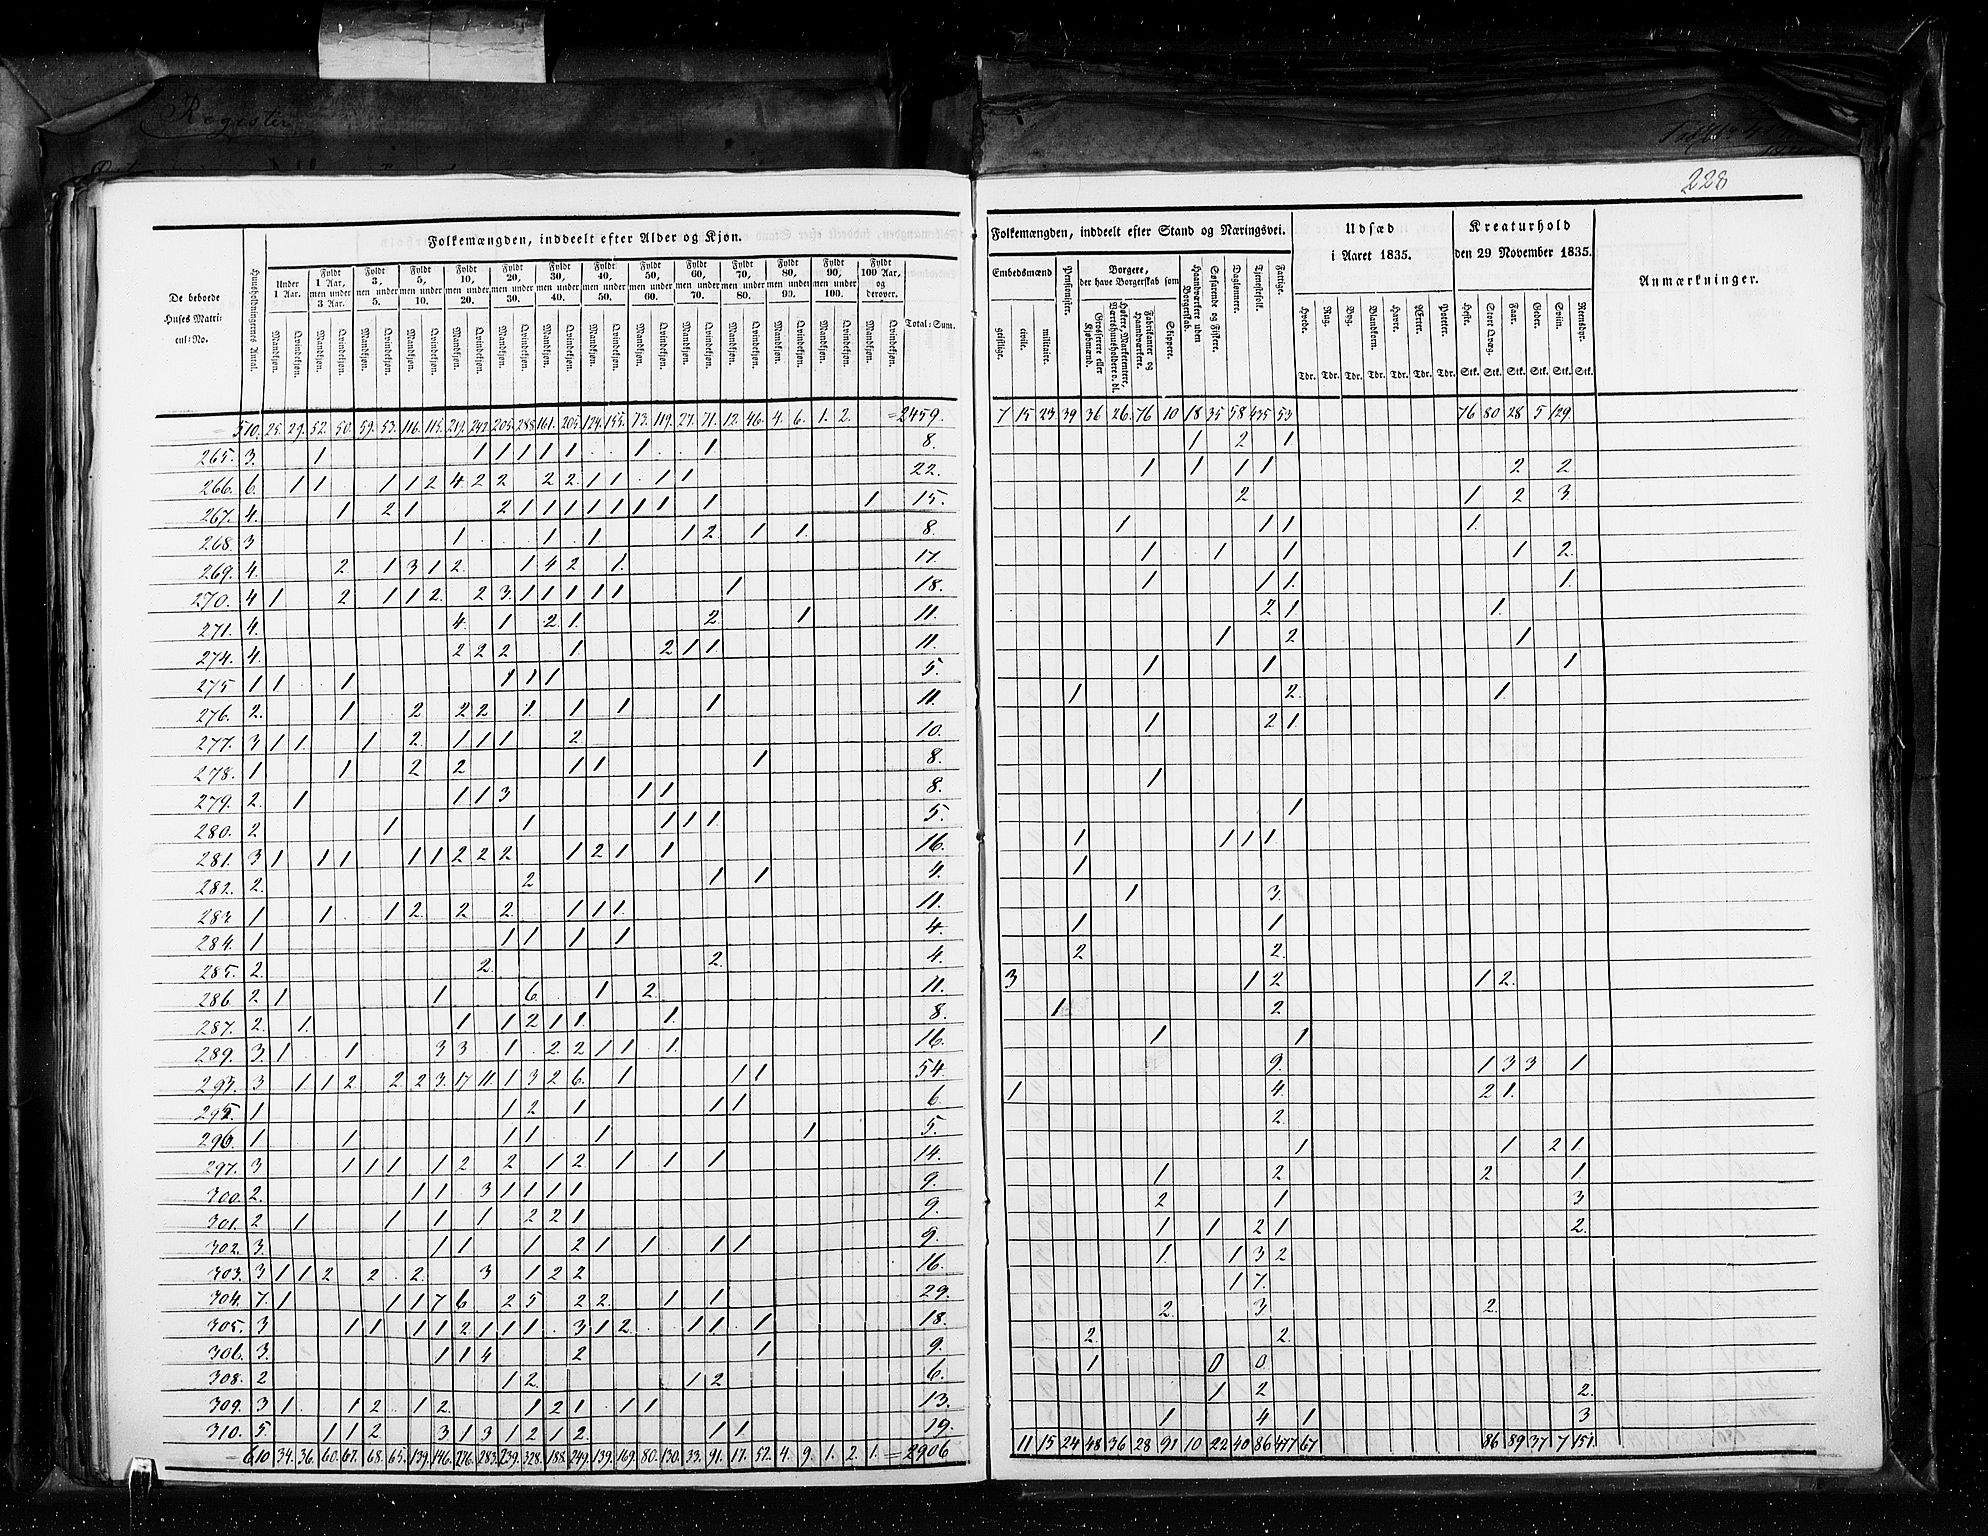 Register
228
Folkemængden, inddeelt efter Alder og Kjøn.
De beboede Huses Matricul-No.
Huusholdningernes Antal.
Under 1 Aar.
Fyldt 1 Aar, men under 3 Aar.
Fyldt 3, men under 5.
Fyldt 5, men under 10.
Fyldt 10, men under 20.
Fyldt 20, men under 30.
Fyldt 30, men under 40.
Fyldt 40, men under 50.
Fyldt 50, men under 60.
Fyldt 60, men under 70.
Fyldt 70, men under 80.
Fyldt 80, men under 90.
Fyldt 90, men under 100.
Fyldt 100 Aar, og derover.
Mandkjøn. Qvindekjøn.
Total-Sum.
510. 25. 29. 52. 50. 59. 53. 116. 115. 219. 242. 205. 288. 161. 205. 124. 155. 73. 119. 27. 71. 12. 46. 4. 6. 1. 2. =2459.
265. 3. 1 1 1 1 1 1 1 1 8.
266. 6. 1 1 1 1 2 4 2 2 2 2 2 1 1 1 1 22.
267. 4. 1 2 1 2 1 1 1 1 1 1 1 1 1 15.
268. 3 1 1 1 1 2 1 1. 8.
269. 4. 2 1 3 1 2. 1 4 2 1. 17.
270. 4 1 2 1 1 2. 2 3. 1 1 1 1 1 1 18.
271. 4. 4. 1 2 1. 2. 1 11.
274. 4. 2 2 2 1 2 1 1 11.
275 1 1 1 1 1 1 5.
276. 2. 1 2 2 2 1. 1 1 1 11.
277. 3 1 1. 1 2. 1 1 1 2 10.
278. 1 1 2 2 1 1 1 8.
279. 2. 1 1 1 3 1 1 8.
280. 2 1 1 1 1 1 5.
281. 3 1 1 1 1 1 2 2 2 1 2 1 1 16.
282. 2. 2 1 1 4.
283. 1 1 1 2. 2 2. 1 1 1. 11.
284. 1 1 1 1 1 4.
285. 2. 2. 2. 4.
286. 2 1 1 6. 1 2. 11.
287. 2. 1. 1 1 2 1 1. 1. 8.
289. 3. 1 1 3 3 1 2. 2 1 1 1. 16.
293. 3 1 1 2. 2 2 3. 17 11. 1 3 2 6. 1 1 1 54.
295. 1 1 2 1 1 1 6.
296. 1 1 1 1 1 1 5.
297. 3 1 1 1 1 2 2 1 2 1 1 1 14.
300. 2. 1 1 3 1 1 1 1 9.
301. 2 1 1 1 1 2 2 1 9.
302. 3. 1 1 1 2 1 1 1 1 9.
303. 3 1 1 2 2 2. 3 1 2 2 16.
304. 7. 1 1 1 7 6 2 5 2 2. 1 1 29.
305. 3 1 1 1 1 2 1 1 1 3 1 2. 1 1 1 18.
306. 3. 1 1 4 2 1 9.
308. 2 1 2. 1 2 6.
309. 3 1 1 2 1 2. 1 2 1 1 1 13.
310. 5. 1 1 2 3 1 3 1 2 1 2. 1 1 19.
=610. 34. 36. 60. 67. 68. 65. 139. 146. 276. 283. 239. 328. 188. 249. 139. 169. 80. 130. 33. 91. 17. 52. 4. 9. 1. 2. 1. =2906
Folkemængden, inddeelt efter Stand og Næringsvei.
Embedsmænd
geistlige. civile. militaire.
Pensionister.
Borgere, der have Borgerskab som
Grosserere eller Kjøbmænd.
Høkere, Marketentere, Værtshuusholdere o. dl.
Fabrikanter og Haandværkere.
Skippere.
Haandværkere uden Borgerskab.
Søfarende og Fiskere.
Daglønnere.
Tjenestefolk.
Fattige.
Udsæd i Aaret 1835.
Hvede. Rug. Byg. Blandkorn. Havre. Erter. Poteter.
Tdr. Tdr. Tdr. Tdr. Tdr. Tdr. Tdr.
Kreaturhold den 29 November 1835.
Heste. Stort Qvæg. Faar. Geder. Sviin. Reensdyr.
Stk. Stk. Stk. Stk. Stk. Stk.
Anmærkninger.
7 15 23 39 36 26 76 10 18 35 58 435 53 76 80 28 5 129.
1 2 1
1 1 1 1 2 2
2 1 2 3
1 1 1 1.
1 1 1 1 2.
1 1 1. 1.
2 1 1.
1 2 1
1 1 1
1 2. 1.
1 2 1
1
1
1 1 1 1
1
1 3.
1 1
2 2.
3 1 2 1 2.
1 2
1 1
9. 1 3 3 1
1 4. 2 1.
2.
1 1 2 1.
1 2 2 1.
2 1 3
1 1 2 1 2.
1. 1 3 2
1 7.
2. 3 2.
2. 2.
1 0 0
1 2 2.
1 4 1 3
11 15 24 48 36 28 91 10 22 40 86 477 67 86 89 37 7 151.